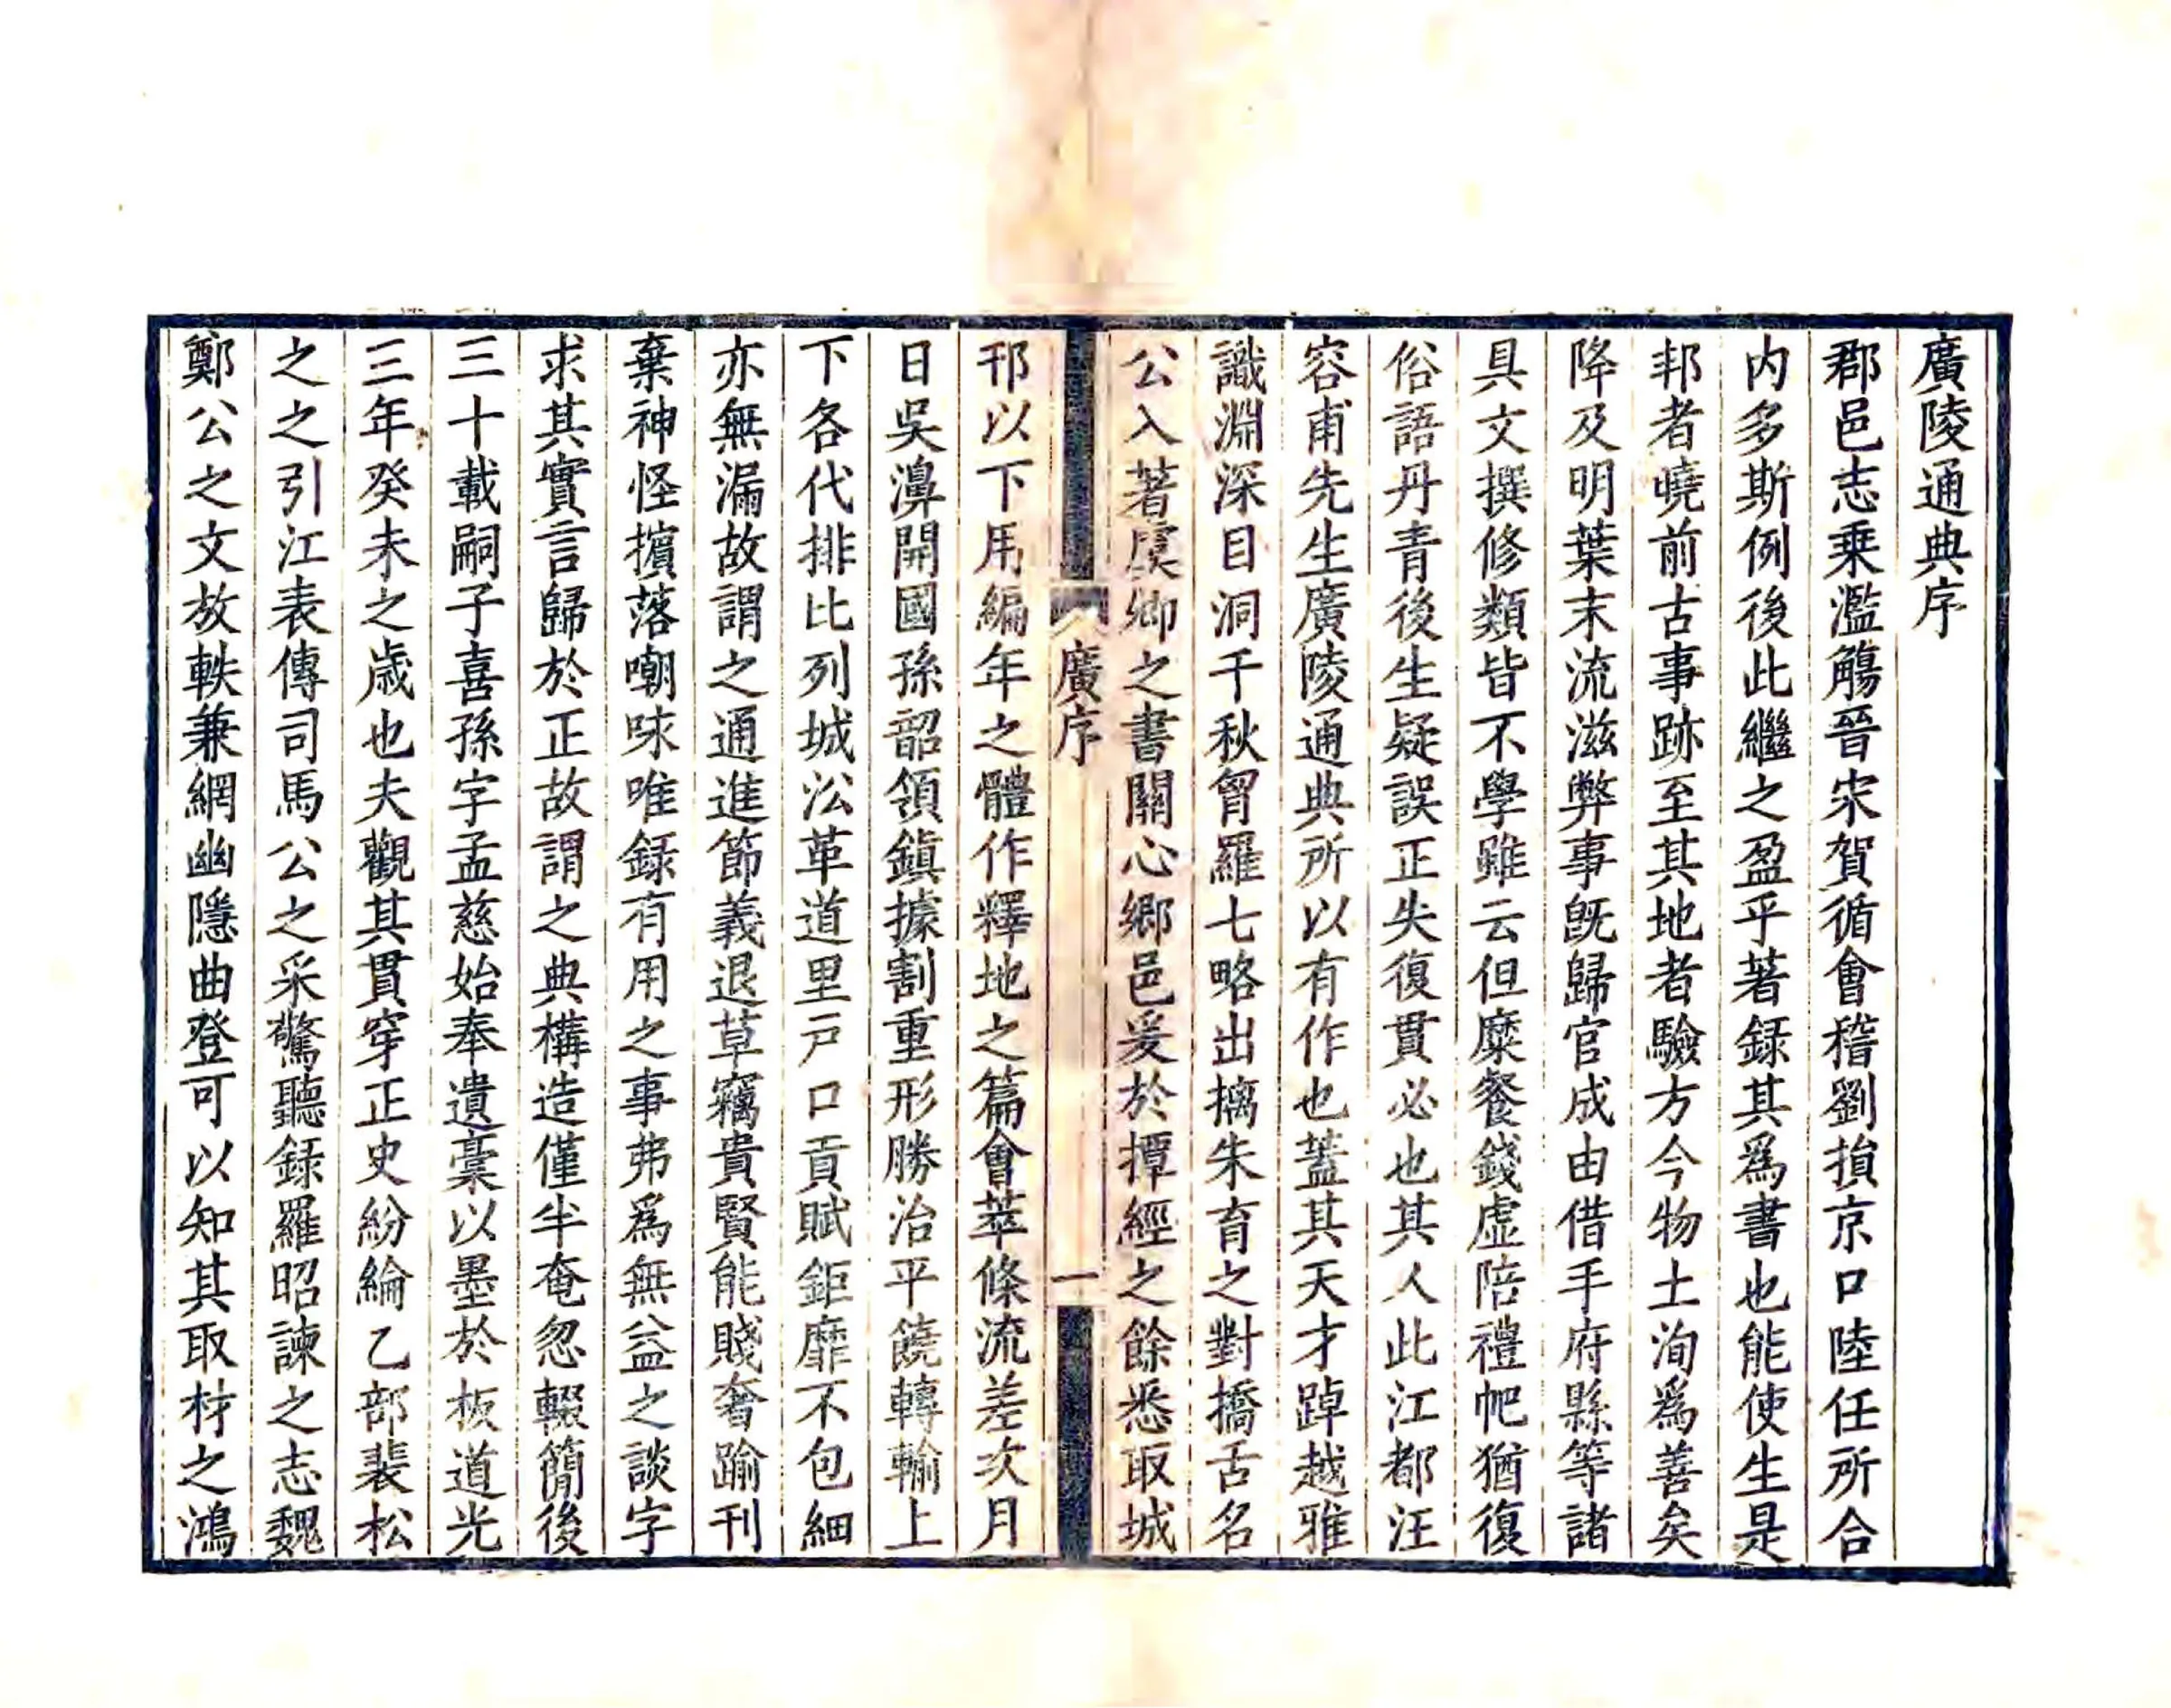 廣陵通典序
郡邑志乗濫觴晉宋賀循會稽劉損京口陸任所合
内多斯例後此繼之盈乎著録其爲書也能使生是
邦者曉前古事跡至其地者驗方今物土洵爲善矣
降及明葉末流滋弊事既歸官成由借手府縣等諸
具文撰修類皆不學雖云但糜餐錢虚陪禮帊猶復
俗語丹青後生疑誤正失復貫必也其人此江都汪
容甫先生廣陵通典所以有作也蓋其天才踔越雅
識淵深目洞千秋胷羅七略出摛朱育之對撟舌名
公入著虞卿之書關心鄉邑爰於撢經之餘悉取城
廣序
一
邗以下用編年之體作釋地之篇會萃條流差次月
日吳濞開國孫韶領鎮據割重形勝治平饒轉輸上
下各代排比列城㳂革道里戸口貢賦鉅靡不包細
亦無漏故謂之通進節義退草竊貴賢能賤奢踰刊
棄神怪擯落嘲㖡唯録有用之事弗爲無益之談字
求其實言歸於正故謂之典構造僅半奄忽輟簡後
三十載嗣子喜孫字孟慈始奉遺槀以墨於板道光
三年癸未之歳也夫觀其貫穿正史紛綸乙部裴松
之之引江表傳司馬公之采驚聽録羅昭諫之志魏
鄭公之文放軼兼網幽隱曲登可以知其取材之鴻